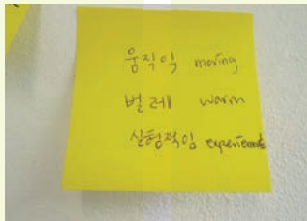 움직임 moving
벌레 worm
실험적임 experiment